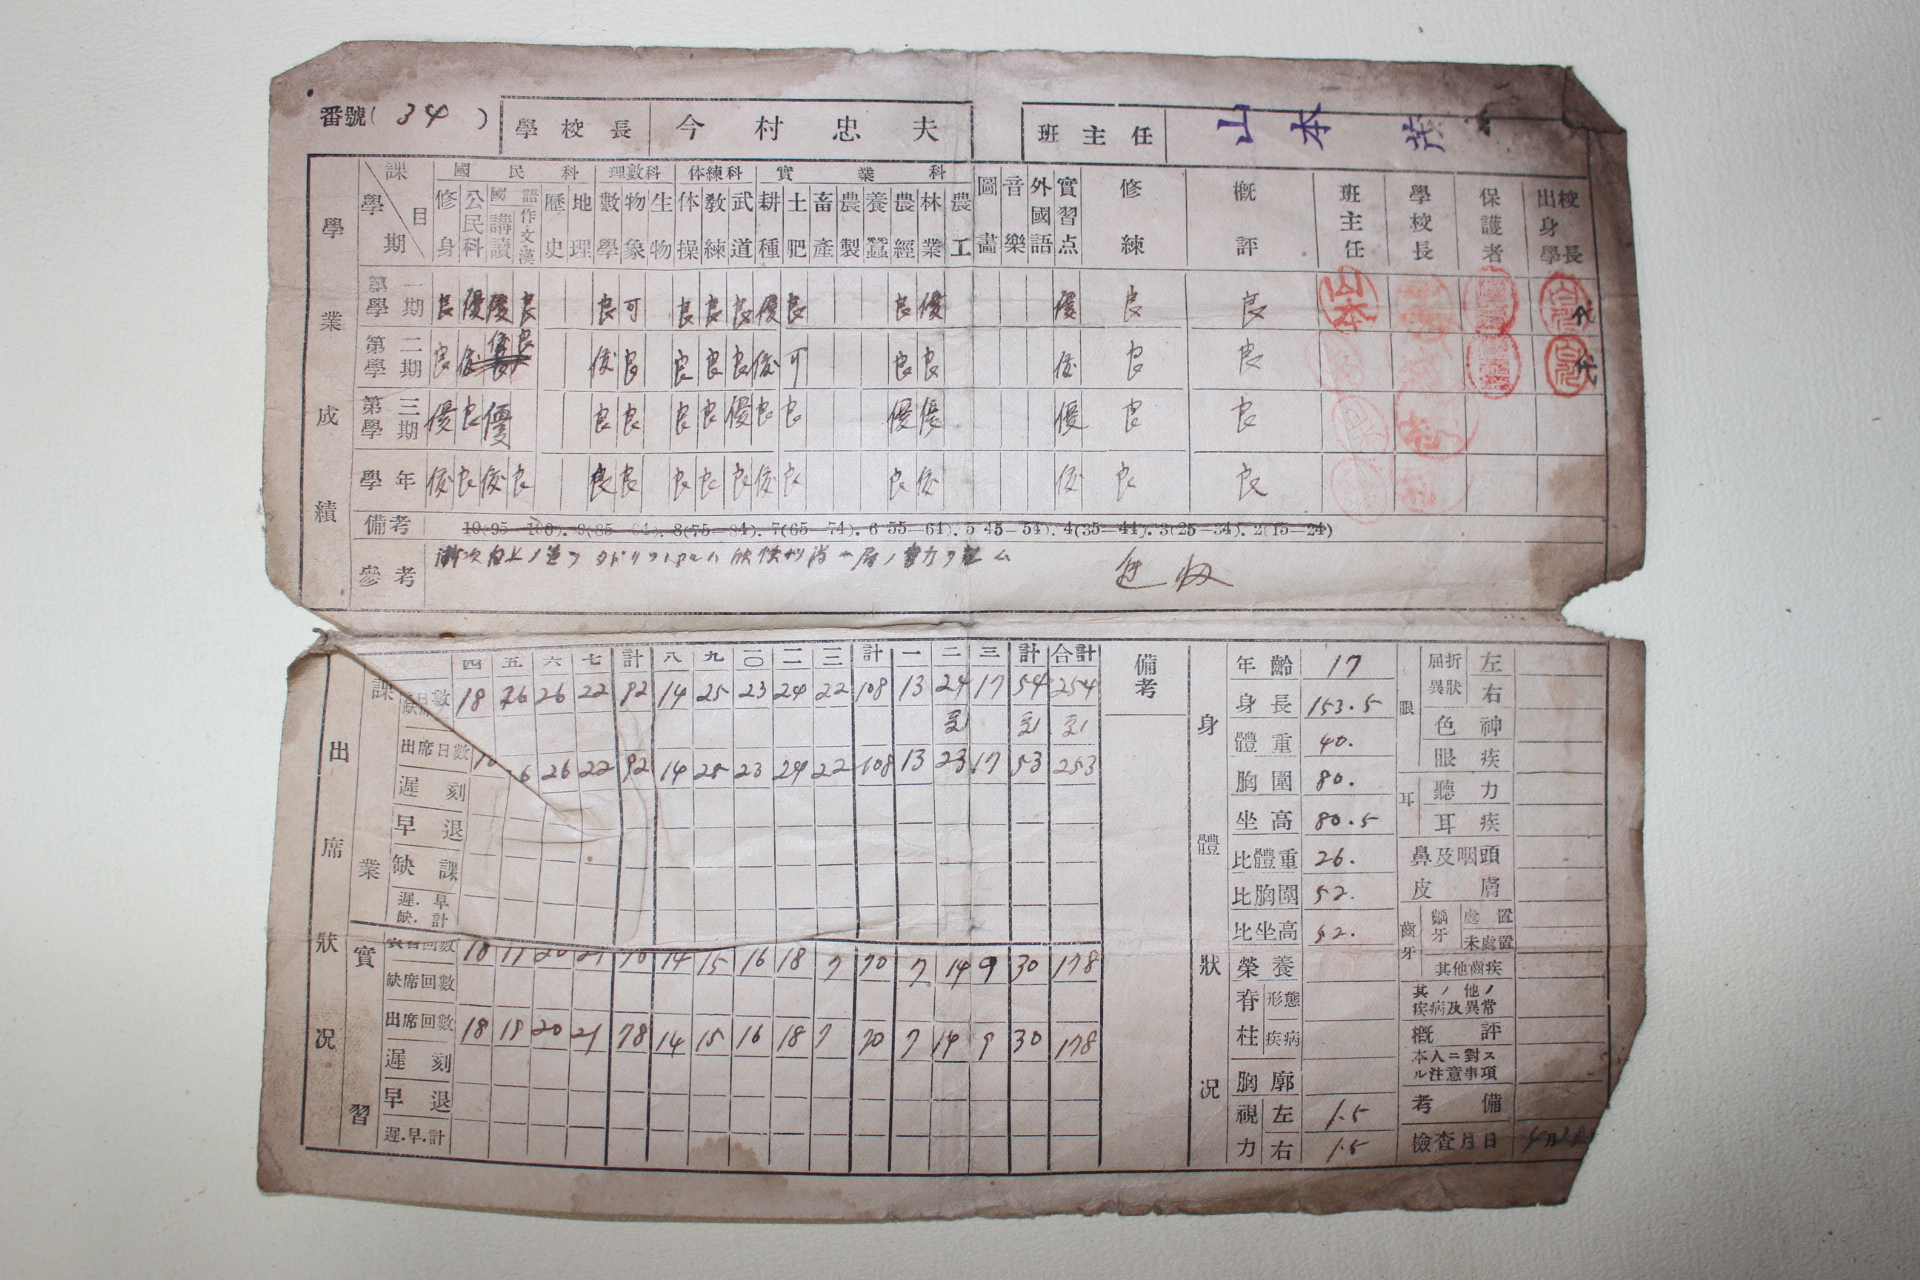 番號( 34 )
學校長 今村忠夫
班主任 山本
學業成績
課目 學期
國民科 理數科 体練科 實業科
修身 公民科 國語 講讀 作文 漢 歷史 地理 數學 物象 生物 体操 敎練 武道 耕種 土肥 畜產 農製 養蠶 農經 林業 農工 圖畫 音樂 外國語 實習点 修練 概評 班主任 學校長 保護者 出身學校長
第一學期 良 優 優 良 良 可 良 良 良 優 良 良 優 優 良 良 山本 代
第二學期 良 優 優 良 優 良 良 良 良 優 可 良 良 優 良 良 代
第三學期 優 良 優 良 良 良 良 優 良 良 優 優 優 良 良
學年 優 良 優 良 良 良 良 良 良 優 良 良 優 優 良 良
備考 10(95—100). 9(85—94). 8(75—84). 7(65—74). 6 55—64). 5 45—54). 4(35—44). 3(25—34). 2(15—24)
參考
進級
出席狀況
四 五 六 七 計 八 九 一〇 一一 一二 計 一 二 三 計 合計
課業
日數 18 26 26 22 92 14 25 23 24 22 108 13 24 17 54 254
出席日數 26 22 92 14 25 23 24 22 108 13 23 17 53 253
遲刻
早退
缺課
遲.早缺.計
實習
實習回數 18 19 20 21 78 14 15 16 18 7 70 7 14 9 30 178
缺席回數
出席回數 18 19 20 21 78 14 15 16 18 7 70 7 14 9 30 178
遲刻
早退
遲.早.計
備考
身體狀況
年齡 17
身長 153.5
體重 40.
胸圍 80.
坐高 80.5
比體重 26.
比胸圍 52.
比坐高 52.
榮養
脊柱 形態
疾病
胸廓
視力 左 1.5
右 1.5
眼 屈折異狀 左
右
色神
眼疾
耳 聽力
耳疾
鼻及咽頭
皮膚
齒牙 齲牙 處置
未處置
其他齒疾
其ノ他ノ疾病及異常
概評
本人ニ對スル注意事項
考備
檢査月日